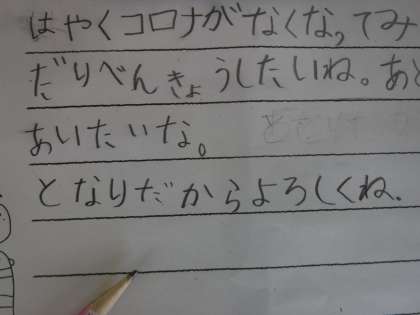 はやくコロナがなくなってみ
だりべんきょうしたいね。あと
あいたいな。
となりだからよろしくね.